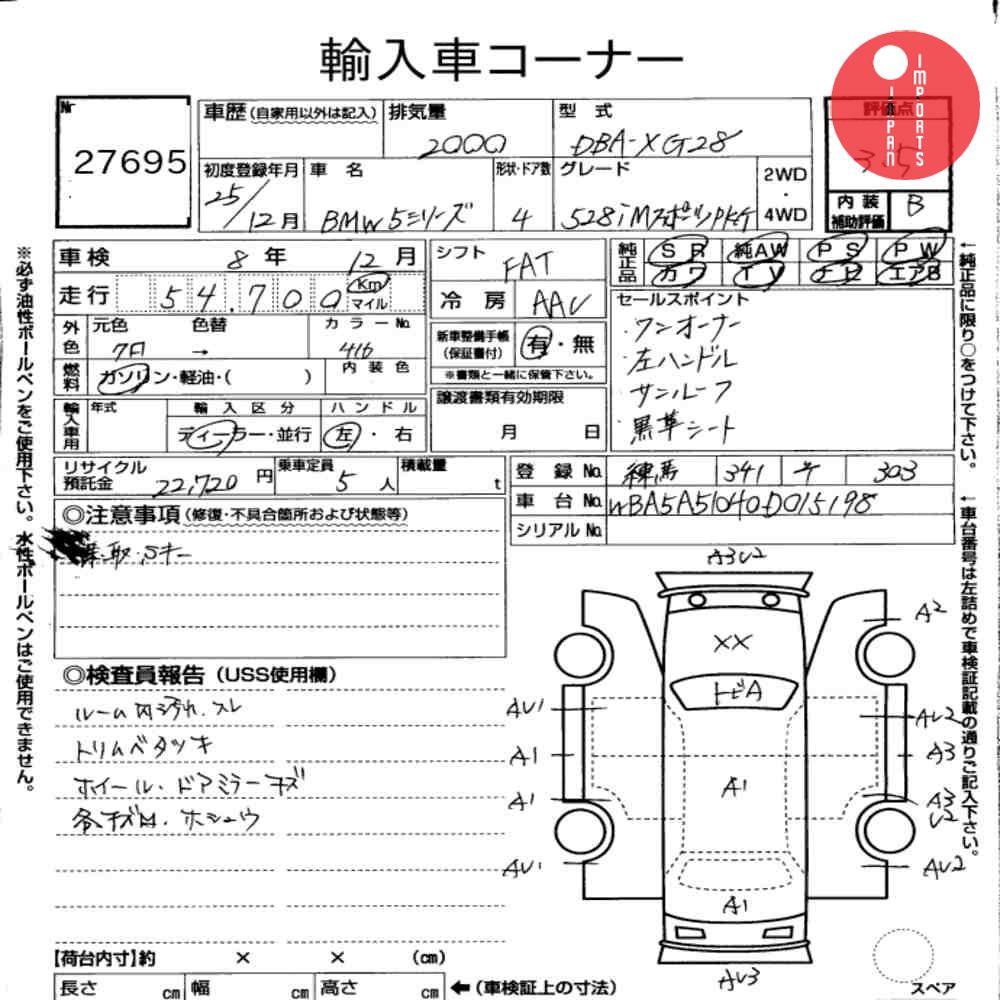 輸入車コーナー
JAPAN IMPORTS
Nr
27695
車歴 (自家用以外は記入)
排気量
2000
型 式
DBA-XG28
評価点
3.5
初度登録年月
25/12月
車 名
BMW 5シリーズ
形状・ドア数
4
グレード
528i Mスポーツ PKG
2WD
・
4WD
内 装
補助評価
B
車検 8年 12月
シフト
FAT
純正品
SR 純AW PS PW
カワ TV ナビ エアB
走行 54,700 Km マイル
冷房 AAC
セールスポイント
・ワンオーナー
・左ハンドル
・サンルーフ
・黒革シート
外色
元色 色替
クロ →
カラーNo.
416
新車整備手帳
(保証書付)
有・無
※書類と一緒に保管下さい。
燃料
ガソリン・軽油・( )
内 装 色
譲渡書類有効期限
月 日
輸入車用
年式
輸 入 区 分
ディーラー・並行
ハ ン ド ル
左・右
リサイクル
預託金
22,720円
乗車定員
5人
積載量
t
登 録 No. 練馬 341 303
車 台 No. WBA5A51040D015198
シリアルNo.
◎注意事項 (修復・不具合箇所および状態等)
取,Sキー
◎検査員報告 (USS使用欄)
ルーム内汚れ.スレ
トリムベタツキ
ホイール・ドアミラーキズ
各キズ凹・ホシュウ
A3U2
A2
XX
トビA
AU1
AU2
A1
A3
A1
A1
A3
U2
AU1
AU2
A1
AU3
スペア
【荷台内寸】約 × × (cm)
長さ cm 幅 cm 高さ cm ←(車検証上の寸法)
※必ず油性ボールペンをご使用下さい。水性ボールペンはご使用できません。
←純正品に限り○をつけて下さい。
←車台番号は左詰めで車検証記載の通りご記入下さい。